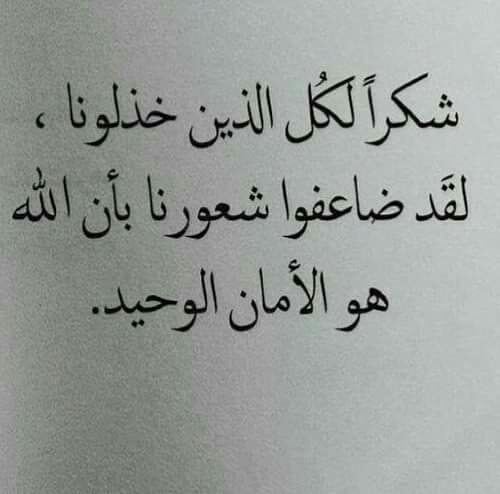 شكراً لَكُل الذين خذلونا ،
لقَد ضاعفوا شعورنا بأن الله
هو الأمان الوحيد.